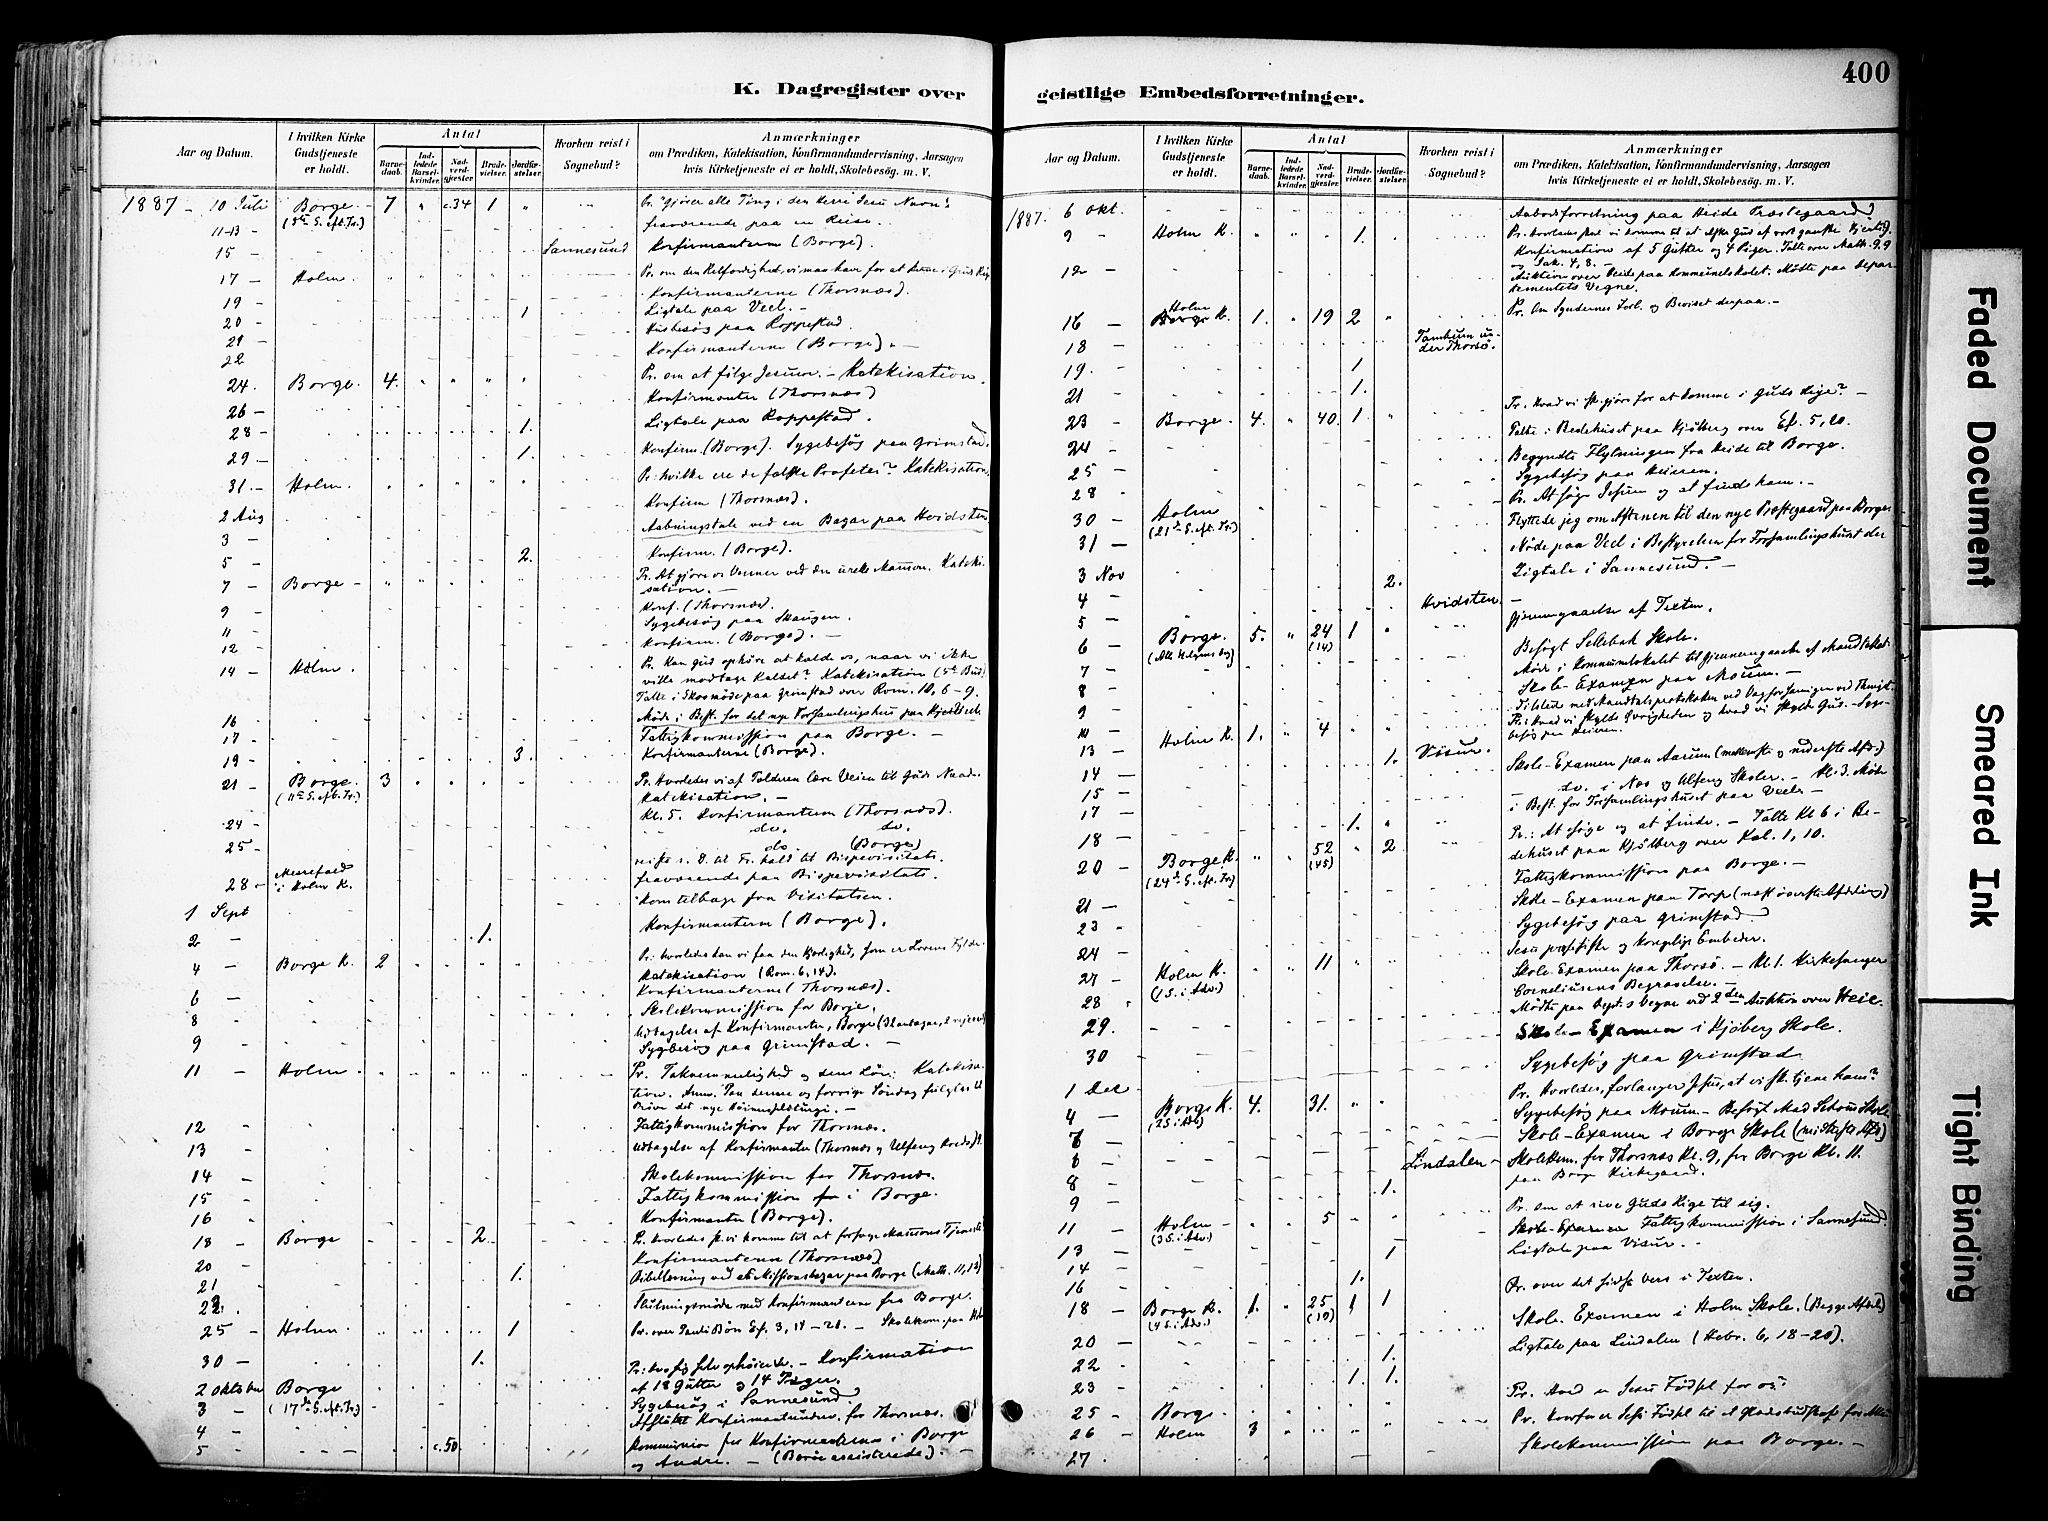 400
K. Dagregister over
geistlige Embedsforretninger.
Aar og Datum.
I hvilken Kirke Gudstjeneste er holdt.
Antal
Barne-daab.
Ind-ledede Barsel-kvinder.
Nad-verd-gjester.
Brude-vielser.
Jordfæ-stelser.
Hvorhen reist i Sognebud?
Anmærkninger
om Prædiken, Katekisation, Konfirmandundervisning, Aarsagen
hvis Kirketjeneste ei er holdt, Skolebesøg. m. V.
1887 - 10 Juli Borge - 7 " c.34 1 " Pr. "Gjører alle Ting i den Herre Jesu Navn".
(5te S. eft. Tr.)
11-13 - fraværende paa en Reise.
15 - Sannesund Konfirmanterne (Borge).
17 - Holm. Pr. om den Retfærdighed, vi maa have for at komme i Guds Rige
19 - Konfirmanterne (Thorsnæs).
20 - 1 Ligtale paa Veel. -
21 - Husbesøg paa Roppestad.
22 Konfirmanterne (Borge). -
24. Borge. 4. Pr. om at følge Jesum. - Katekisation.
26 - Konfirmanter (Thorsnæs)
28 - 1. Ligtale paa Roppestad.
29 - 1. Konfirm. (Borge). Sygebesøg paa Grimstad.
31. - Holm. Pr: hvilke ere de falske Profeter? Katekisation.
2 Aug Konfirm (Thorsnæs).
3 - Aabningstale ved en Bazar paa Hvidsten
5 - 2. Konfirm. (Borge).
7 - Borge - Pr. At gjøre os Venner ved den urette Mammon. Kateki-
sation. -
9 - Konf. (Thorsnæs).
11 - Sygebesøg paa Skaugen.
12 - Konfirm. (Borge). -
14 - Holm. Pr. Kan Gud ophøre at kalde os, naar vi ikke
ville modtage Kaldet? Katekisation (5te Bud)
Talte i Skosmøde paa Grimstad over Rom. 10, 6-9.
16 - Møde i Best. for det nye Forsamlingshus paa
17 - Fattigkommission paa Borge. -
19 - 3. Konfirmanterne (Borge).
21 - Borge. 3 Pr. Hvorledes vi af Tolderen lære Veien til Guds Naade.
(11te S. eft. Tr.) Katekisation. -
24 - Kl. 5. Konfirmanterne (Thorsnæs).
do. do.
25 - do (Borge)
28 - Messefald i Holm K. fraværende paa Bispevisitats.
1 Sept Kom tilbage fra Visitatsen.
2 - 1. Konfirmanterne (Borge).
4 - Borge K. 2 Pr: hvorledes kan vi faa den Kjærlighed, som er Lovens Fylde.
Katekisation (Rom. 6, 14).
6 - Konfirmanterne (Thorsnæs).
8 - Skolekommission for Borge.
9 - Udtagelse af Konfirmanter, Borge
Sygebesøg paa Grimstad. -
11 - Holm. Pr. Taknemmelighed og dens Løn; Katekisa-
tion. Anm. Paa denne og forrige Søndag
12 - Fattigkommission for Thorsnæs.
13 - Udtagelse af Konfirmanter (Thorsnæs og Ulfeng Kreds).
14 - Skolekommission for Thorsnæs.
15 - Fattigkommission i Borge.
16 - Konfirmanter (Borge).
18 - Borge 2. Pr. hvorledes sk. vi komme til at forsage Mammons Tjeneste
20 - Konfirmanterne (Thorsnæs)
21 - 1. Bibellæsning ved et Missionsbazar paa Borge (Matth. 11, 12)
22. Slutningsmøde med Konfirmanterne fra Borge.
25 - Holm. 1 Pr. over Pauli Bøn Ef. 3, 14-21. - Skolekom. paa
30 - 1.
2 Oktober Borge Konfirmation
(17de S. eft. Tr.) af 18 Gutter og 14 Piger.
3 - Sygebesøg i Sannesund.
4 - Afsluttet Konfirmandunder. for Thorsnæs.
5 - c. 50. Kommunion for Konfirmanterne i Borge
og Andre. - (Borge assisterede). -
Aar og Datum.
I hvilken Kirke Gudstjeneste er holdt.
Antal
Barne-daab.
Ind-ledede Barsel-kvinder.
Nad-verd-gjester.
Brude-vielser.
Jordfæ-stelser.
Hvorhen reist i Sognebud?
Anmærkninger
om Prædiken, Katekisation, Konfirmandundervisning, Aarsagen
hvis Kirketjeneste ei er holdt, Skolebesøg. m. V.
1887. 6 Okt. Aabodsforretning paa Heide Præstegaard
9 - Holm K. 1. Pr. Hvorledes skal vi komme til at elske Gud af vort ganske Hjerte?
Konfirmation af 5 Gutter og 4 Piger. Talte over Matth. 9, 9
og Sak. 4, 8. -
12 - Auktion over Heide paa Kommunelokalet. Mødte paa Depar-
tementets Vegne.
16 - Holm K. 1. 19 2 Pr. Om Syndernes Forl. og Beviset derpaa. -
18 - under Thorsø.
19. - 1
21 - 1.
23 - Borge. 4. 40. 1 Pr. Hvad vi sk. gjøre for at komme i Guds Rige? -
24 - Talte i Bedehuset paa Kjølberg over Ef. 5, 20.
25 - Begyndte Flytningen fra Heide til Borge.
28 - Sygebesøg paa
30 - Holm Pr. At søge Jesum og at finde ham. -
(21de S. eft. Tr.)
31 - Flyttede jeg om Aftenen til den nye Præstegaard paa Borge.
3 Nov Møde paa Veel i Bestyrelsen for Forsamlingshuset der
2. Ligtale i Sannesund. -
4 - Hvidsten. -
5 -
6 - Borge. 5. 24 1 Gjennemgaaelse af Texten.
(Alle Helgens Dag) (14)
7 - Besøgt Sellebak Skole.
8 - Møde i Kommunelokalet til Gjennemgaaelse af Mandtallet.
9 - Skole-Examen paa Moum. -
10 - Tilstede med Mandtalsprotokollen ved
13 - Holm K. 1. 4 Pr: Hvad vi skylde Øvrigheden og hvad vi skylde Gud. - Syge-
besøg paa
14 - 1. Visur. Skole-Examen paa Aarum (mellemste og nederste Afd.)
15 - do. i Næs og Ulfeng Skoler. - Kl. 3. Møde
17 - i Best. for Forsamlingshuset paa Veel. -
18 - 1.
20 - Borge K. 52 2 Pr.: At søge og at finde. - Talte Kl 6 i Be-
(24de S. eft. Tr.) (45) dehuset paa Kjølberg over Kol. 1, 10.
21 - Fattigkommission paa Borge. -
23 Skole-Examen paa Torp (næst øverste Afdeling)
24 - Sygebesøg paa Grimstad.
27 - Holm K. 11 Jesu præstelige og kongelige Embeder.
(1 S. i Adv.)
28 Skole-Examen paa Thorsø. - Kl. 1. Kirkesanger
Corneliusens Begravelse. -
29. - Mødte paa Dept.s Vegne ved 2den Auktion over Heie.
30 Skole-Examen i Kjøberg Skole.
1 Dec Sygebesøg paa Grimstad
4 - Borge K. 4. 31. Pr. Hvorledes forlanger Jesus, at vi sk. tjene ham?
(2 S. i Adv)
Sygebesøg paa Moum -
Skole-Examen i Borge Skole
Lindalen - Skolekom. for Thorsnæs Kl. 9, for Borge Kl. 11.
8 - 1. paa Borge Kirkegaard.
9 -
11 - Holm - 5 Pr. om at rive Guds Rige til sig.
(3 S. i Adv.)
13 - 1 Fattigkommission i Sannesund.
14 - Ligtale paa Visur. -
16 - 1.
18 - Borge K. 1. 25 1 1 Pr. over det sidste Vers i Texten.
(4 S. i Adv.) (10)
20 - Skole-Examen i Holm Skole. (Begge Afdel)
22 - 1. Ligtale paa Lindalen (Hebr. 6, 18-20).
23 - 1. 1.
25 - Borge Pr. Hvad er Jesu Fødsel for os?
26 - Holm 3 Pr. Hvorfor er Jesu Fødsel til et Glædesbudskab for Alle
27 - Skolekommission paa Borge. -
Faded Document
Smeared Ink
Tight Binding